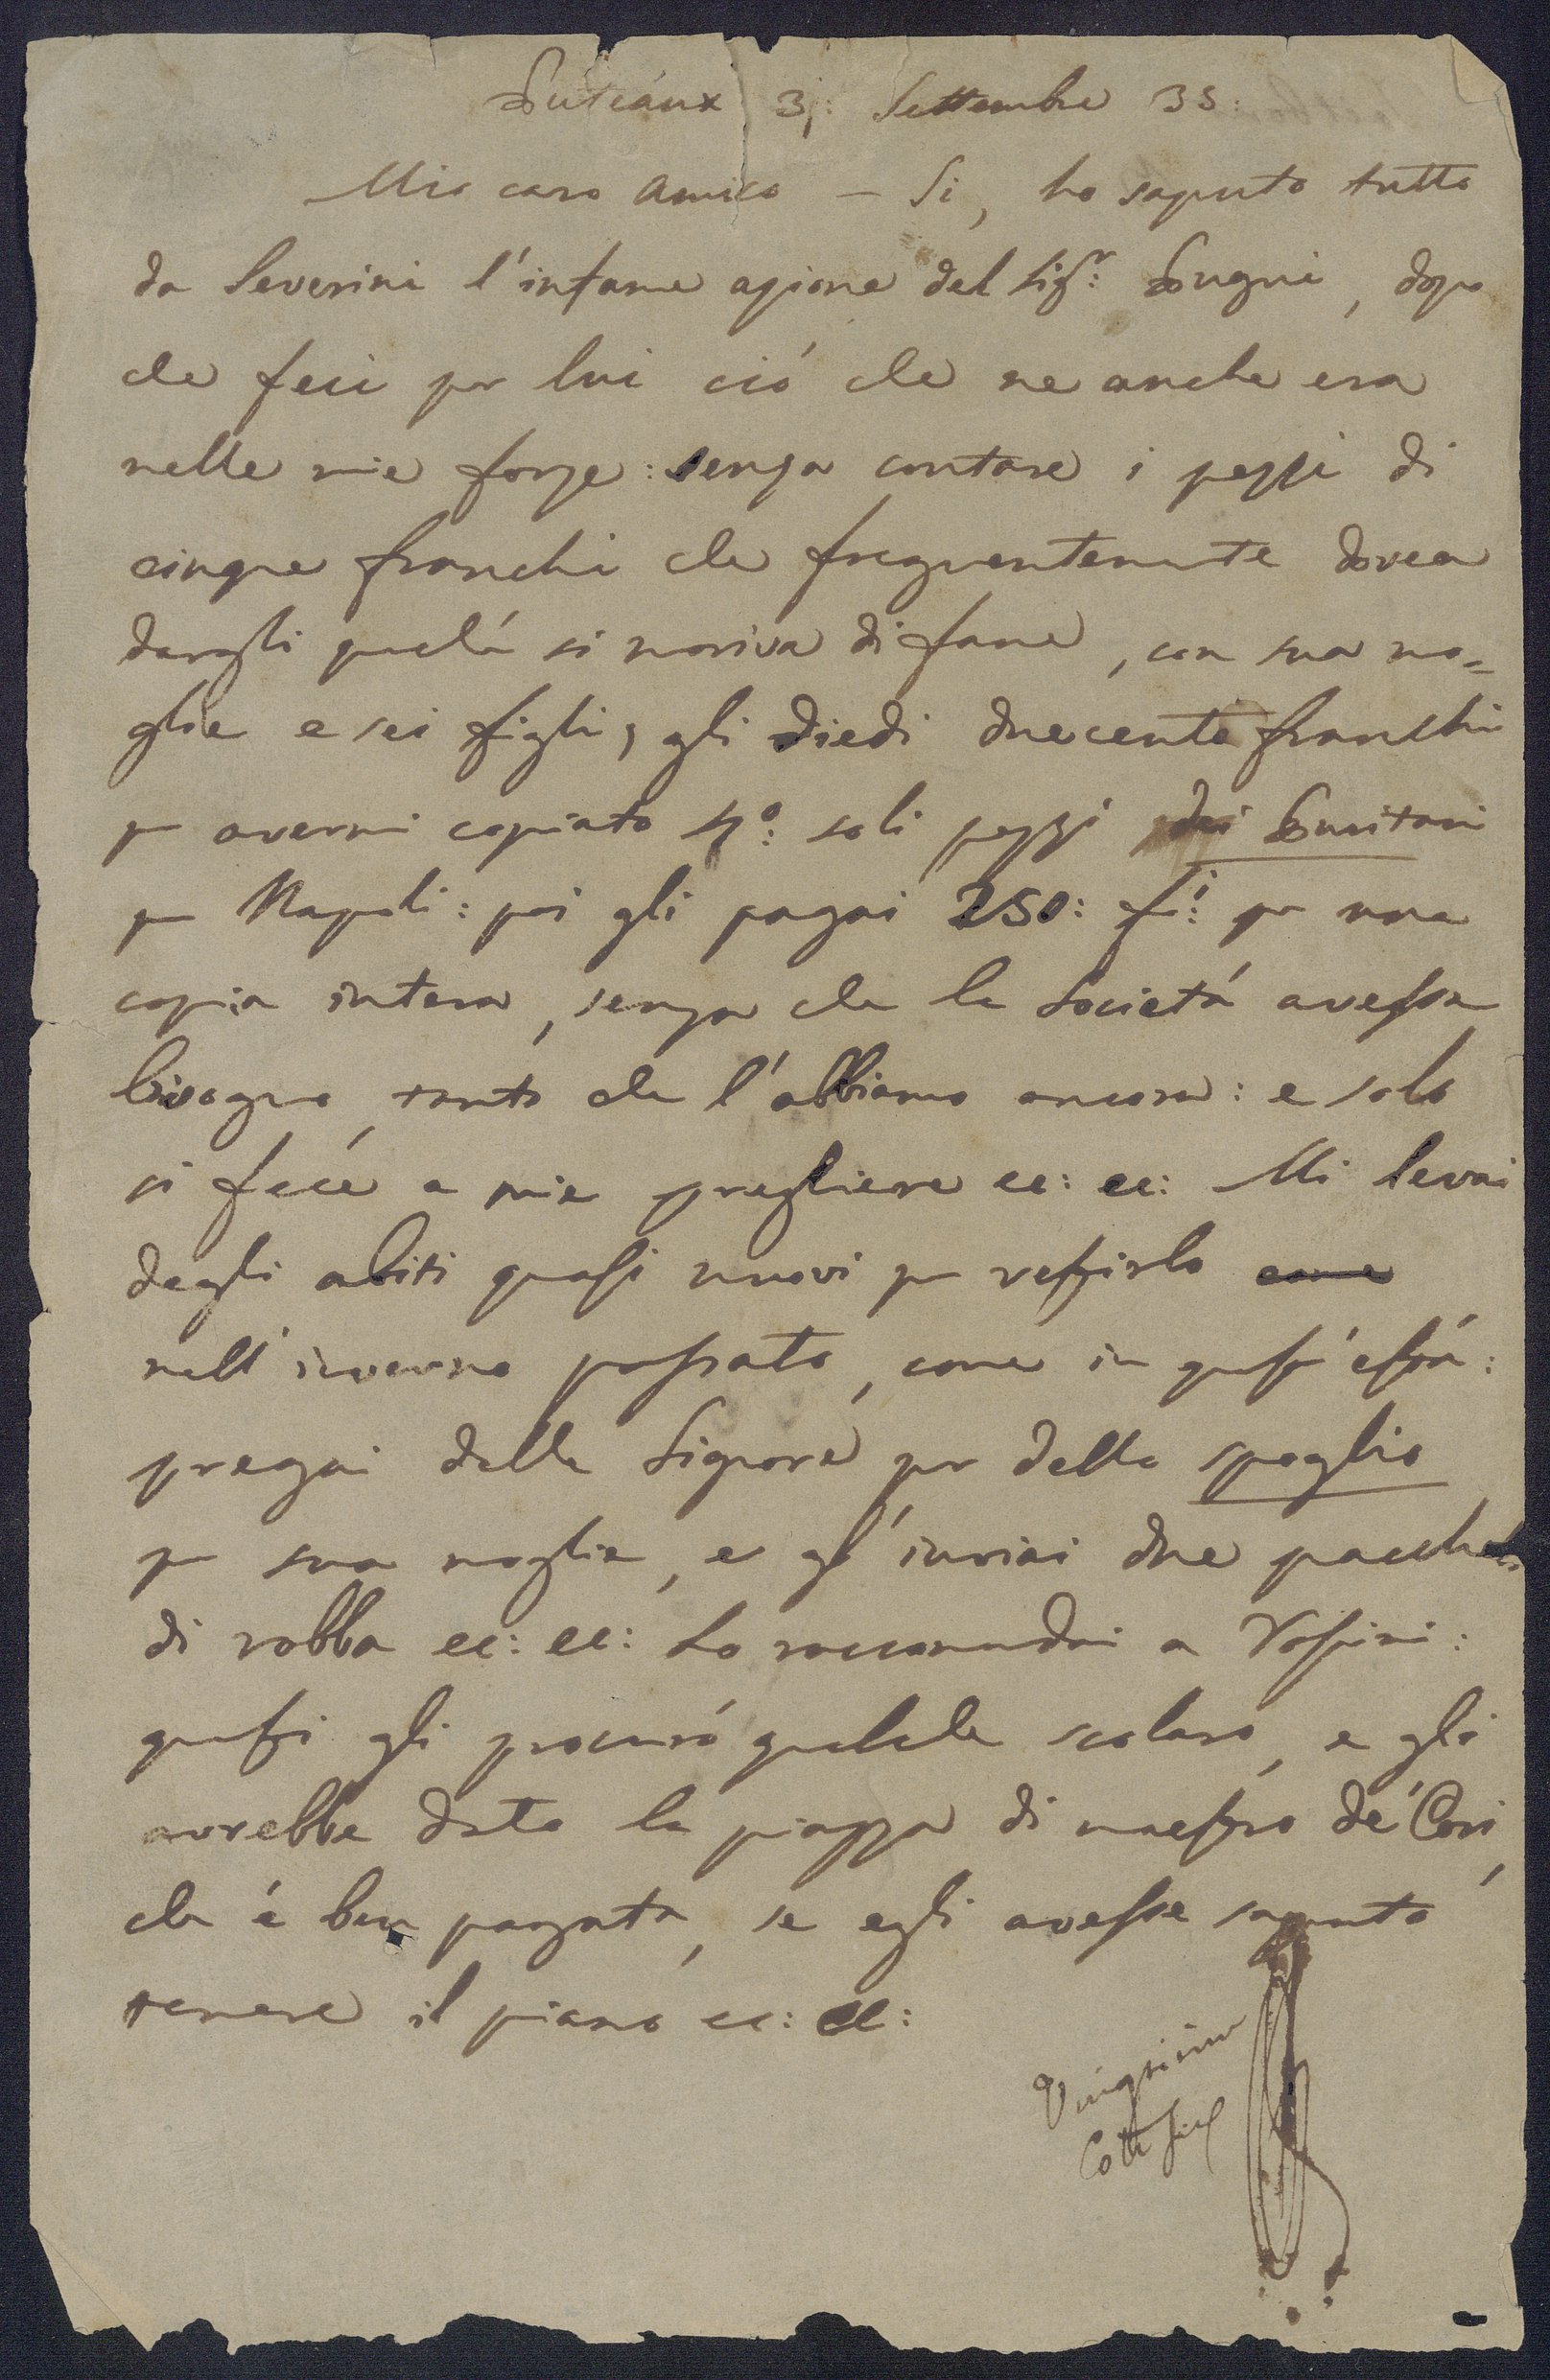 Puteaux 3: Settembre 35:
Mio caro Amico — Si, ho saputo tutto
da Severini l'infame azione del Sigr: Pugni, dopo
che feci per lui ció che ne anche era
nelle mie forze: senza contare i pezzi di
cinque franchi che frequentemente dovea
dargli perché si moriva di fame, con sua mo=
glie e sei figli, gli diedi duecento franchi
per avermi copiato soli pezzi dei Puritani
per Napoli: poi gli pagai 250: fi: per una
copia intera, senza che la Societá avesse
bisogno, tanto che l'abbiamo ancora: e solo
si fece a mie preghiere ec: ec: Mi levai
degli abiti quasi nuovi per vestirlo come
nell'inverno passato, come in quest'está:
pregai delle Signore per delle spoglio
per sua moglie, e gl'inviai due pacchetti
di robba ec: ec: Lo raccomandai a Rossini:
questi gli procuró qualche scolaro, e gli
avrebbe dato la piazza di maestro de' Cori,
che é ben pagata, se egli avesse saputo
tenere il piano ec: ec: